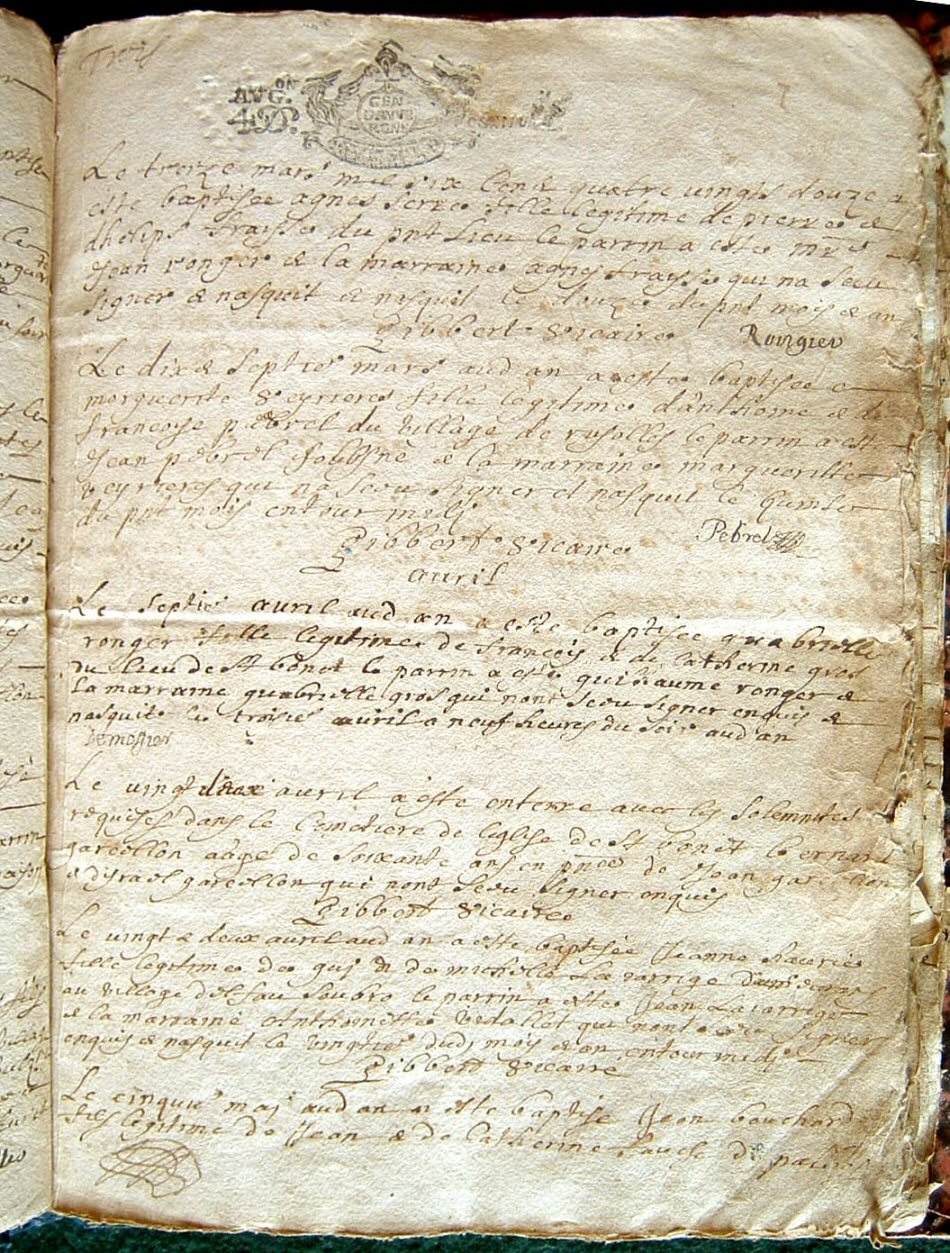 Trois
AVG.ON
40D.
GEN
D'AVVE
RGNE
Le treize mars mil six cent quatre vingts douze a
este baptisée agnes serre fille legitime de pierre &
dhelips fraisse du pnt lieu le parrin a este mre
Jean ronger & la marraine agnes fraisse qui na sceu
signer & nasquit & nasquit le douze du pnt mois & an
Gibbert vicaire Rongier
Le dix & septie mars aud an a este baptisée
marguerite veyrieres fille legitime d'anthoine & de
francoise pebrel du village de le parrin a este
Jean pebrel & la marraine margueritte
veyrieres qui na sceu signer et nasquit le
du pnt mois entour midj
Gibbert vicaire Pebrel
avril
Le septie avril aud an a este baptisée guabrielle
ronger fille legitime de francois & de catherine gros
du lieu de st bonet le parrin a este guilhaume ronger &
la marraine guabrielle gros qui nont sceu signer enquis &
nasquit le troisie avril a neuf heures du soir aud an
Le vingt deux avril a este enterre avec les solemnites
requises dans le cemetiere de leglise de st bonet bernard
garcellon aâgé de soixante ans en pnce de Jean garcellon
& disrael garcellon qui nont sceu signer enquis
Gibbert vicaire
Le vingt & deux avril aud an a este baptisée Jeanne
fille legitime de & de michelle lavarrige
au village del sau soubro le parrin a este Jean Lavarrige
& la marraine Anthonette vidallot qui nont signer
enquis & nasquit le vingtie dudj mois & an entour midj
Gibbert vicaire
Le cinquie maj aud an a este baptise Jean bouchard
fils legitime de Jean & de catherine